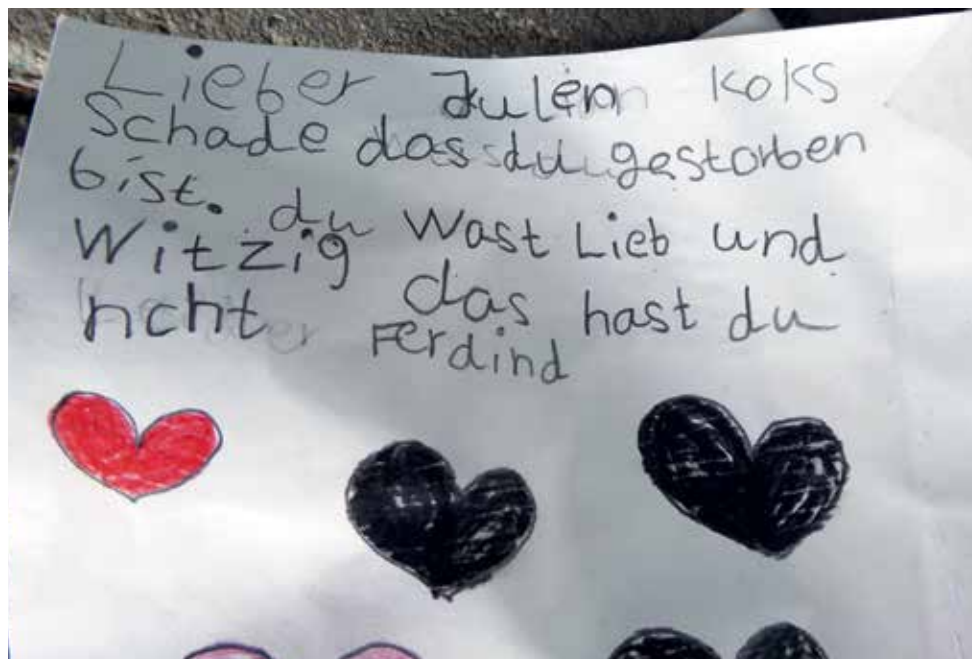 Lieber Julen Koks
Schade das du gestorben
bist. du wast Lieb und
Witzig das hast du
ncht Ferdind